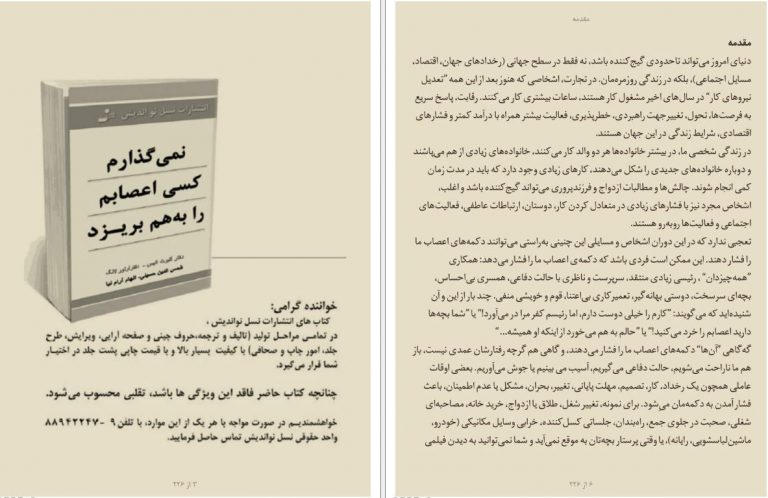 مقدمه
مقدمه
دنیای امروز می‌تواند تاحدودی گیج‌کننده باشد، نه فقط در سطح جهانی (رخدادهای جهان، اقتصاد،
مسایل اجتماعی)، بلکه در زندگی روزمره‌مان. در تجارت، اشخاصی که هنوز بعد از این همه "تعدیل
نیروهای کار" در سال‌های اخیر مشغول کار هستند، ساعات بیشتری کار می‌کنند. رقابت، پاسخ سریع
به فرصت‌ها، تحول، تغییرجهت راهبردی، خطرپذیری، فعالیت بیشتر همراه با درآمد کمتر و فشارهای
اقتصادی، شرایط زندگی در این جهان هستند.
در زندگی شخصی ما، در بیشتر خانواده‌ها هر دو والد کار می‌کنند، خانواده‌های زیادی از هم می‌پاشند
و دوباره خانواده‌های جدیدی را شکل می‌دهند، کارهای زیادی وجود دارد که باید در مدت زمان
کمی انجام شوند. چالش‌ها و مطالبات ازدواج و فرزندپروری می‌تواند گیج‌کننده باشد و اغلب،
اشخاص مجرد نیز با فشارهای زیادی در متعادل کردن کار، دوستان، ارتباطات عاطفی، فعالیت‌های
اجتماعی و فعالیت‌ها روبه‌رو هستند.
تعجبی ندارد که در این دوران اشخاص و مسایلی این چنینی به‌راستی می‌توانند دکمه‌های اعصاب ما
را فشار دهند. این ممکن است فردی باشد که دکمه‌ی اعصاب ما را فشار می‌دهد: همکاری
"همه‌چیزدان"، رئیسی زیادی منتقد، سرپرست و ناظری با حالت دفاعی، همسری بی‌احساس،
بچه‌ای سرسخت، دوستی بهانه‌گیر، تعمیرکاری بی‌اعتنا، قوم و خویشی منفی. چند بار این و آن
شنیده‌اید که می‌گویند: "کارم را خیلی دوست دارم، اما رئیسم کفر مرا در می‌آورد!" یا "شما بچه‌ها
دارید اعصابم را خرد می‌کنید!" یا "حالم به هم می‌خورد از اینکه او همیشه..."
گه‌گاهی "آن‌ها" دکمه‌های اعصاب ما را فشار می‌دهند، و گاهی هم گرچه رفتارشان عمدی نیست، باز
هم ما ناراحت می‌شویم، حالت دفاعی می‌گیریم، آسیب می بینیم یا جوش می‌آوریم. بعضی اوقات
عاملی همچون یک رخداد، کار، تصمیم، مهلت پایانی، تغییر، بحران، مشکل یا عدم اطمینان، باعث
فشار آمدن به دکمه‌مان می‌شود. برای نمونه، تغییر شغل، طلاق یا ازدواج، خرید خانه، مصاحبه‌ای
شغلی، صحبت در جلوی جمع، راه‌بندان، جلساتی کسل‌کننده، خرابی وسایل مکانیکی (خودرو،
ماشین‌لباسشویی، رایانه)، یا وقتی پرستار بچه‌تان به موقع نمی‌آید و شما نمی‌توانید به دیدن فیلمی
۶ از ۲۲۶
انتشارات نسل نواندیش
نمی‌گذارم
کسی اعصابم
را به‌هم بریزد
دکتر آلبرت الیس - دکتر آرتور لانگ
شمس الدین حسینی، الهام آرام نیا
خواننده گرامی:
کتاب های انتشارات نسل نواندیش،
در تمامی مراحل تولید (تالیف و ترجمه، حروف چینی و صفحه آرایی، ویرایش، طرح
جلد، امور چاپ و صحافی) با کیفیت بسیار بالا و با قیمت چاپی پشت جلد در اختیار
شما قرار می‌گیرد.
چنانچه کتاب حاضر فاقد این ویژگی ها باشد، تقلبی محسوب می‌شود.
خواهشمندیم در صورت مواجه با هر یک از این موارد، با تلفن ۹ -۸۸۹۴۲۲۴۷
واحد حقوقی نسل نواندیش تماس حاصل فرمایید.
۳ از ۲۲۶